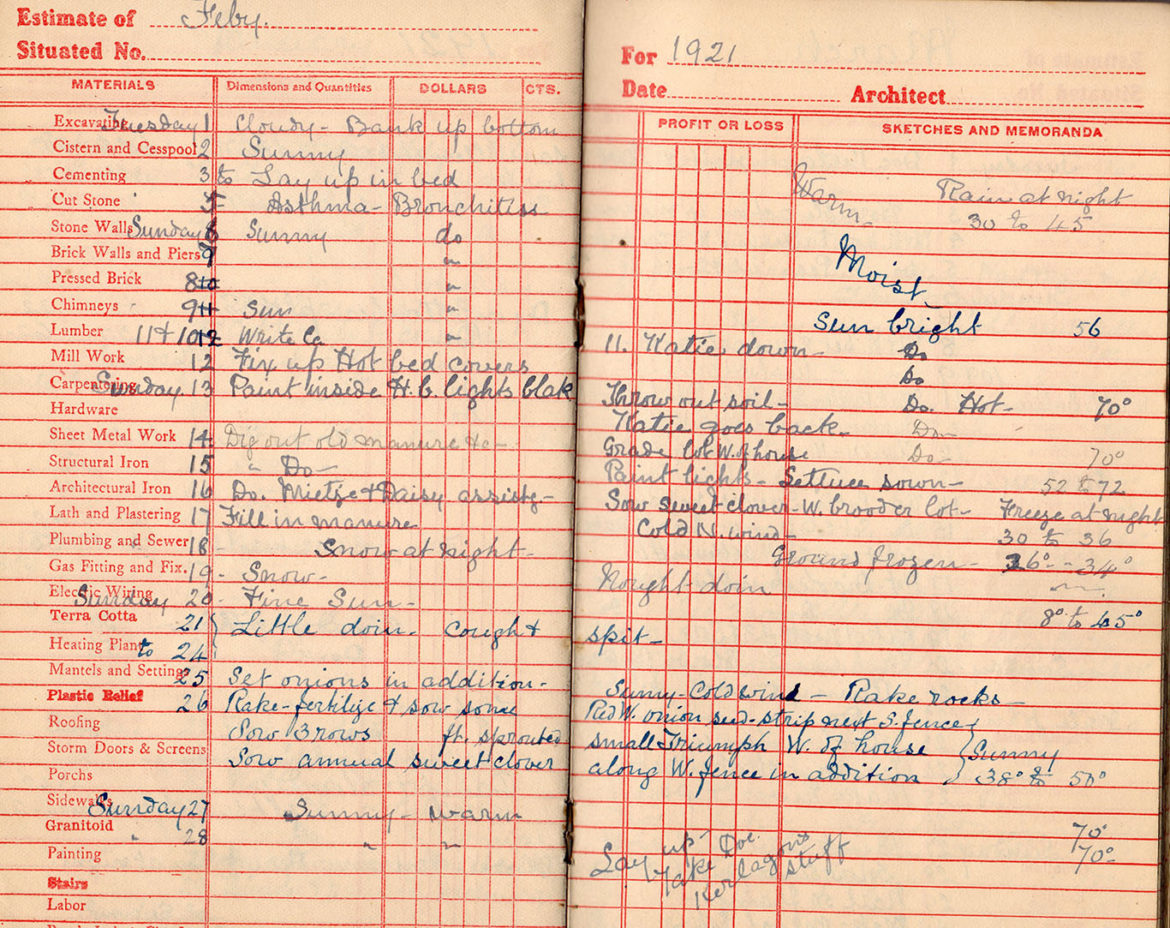 Estimate of Feby.
Situated No.
MATERIALS Dimensions and Quantities DOLLARS CTS.
Excavating Tuesday 1 Cloudy - Bank up bottom
Cistern and Cesspool 2 Sunny
Cementing 3 to Lay up in bed
Cut Stone 5 Asthma - Bronchitiss
Stone Walls Sunday 6 Sunny do
Brick Walls and Piers "
Pressed Brick 8 10 "
Chimneys 9 11 Sun "
Lumber 11 + 10 12 Write Ca "
Mill Work 12 Fix up Hot bed covers
Carpentering Sunday 13 Paint inside H. b. lights blak
Hardware
Sheet Metal Work 14 Dig out old manure &c -
Structural Iron 15 " Do -
Architectural Iron 16 Do. Mietze & Daisy assistg -
Lath and Plastering 17 Fill in manure
Plumbing and Sewer 18 - Snow at night -
Gas Fitting and Fix. 19 - Snow -
Electric Wiring Sunday 20 - Fine Sun -
Terra Cotta 21 Little doin. cough &
Heating Plant to 24
Mantels and Settings 25 Set onions in addition -
Plastic Relief 26 Rake - fertilize & sow some
Roofing Sow 3 rows ft. sprouted
Storm Doors & Screens Sow annual sweet clover
Porchs
Sidewalks Sunday 27 Sunny - warm
Granitoid " 28 " "
Painting
Stairs
Labor
For 1921
Date Architect
PROFIT OR LOSS SKETCHES AND MEMORANDA
Warm - Rain at night
30 to 45°
Moist -
Sun bright 56
11. Katie down - Do
Do
Throw out soil - Do. Hot - 70°
Katie goes back - Do -
Grade lot W. of house Do - 70°
Paint lights - Lettuce sown - 52 to 72
Sow sweet clover - W. brooder lot - Freeze at night
Cold N. wind - 30 to 36
Ground frozen - 26° - 34°
Nought doin
8° to 45°
spit -
Sunny - Cold wind - Rake rocks -
Red W. onion seed - strip next S. fence
small Triumph W. of house Sunny
along W. fence in addition 38° to 50°
70°
Lay up - Take Doc 70°
stuff